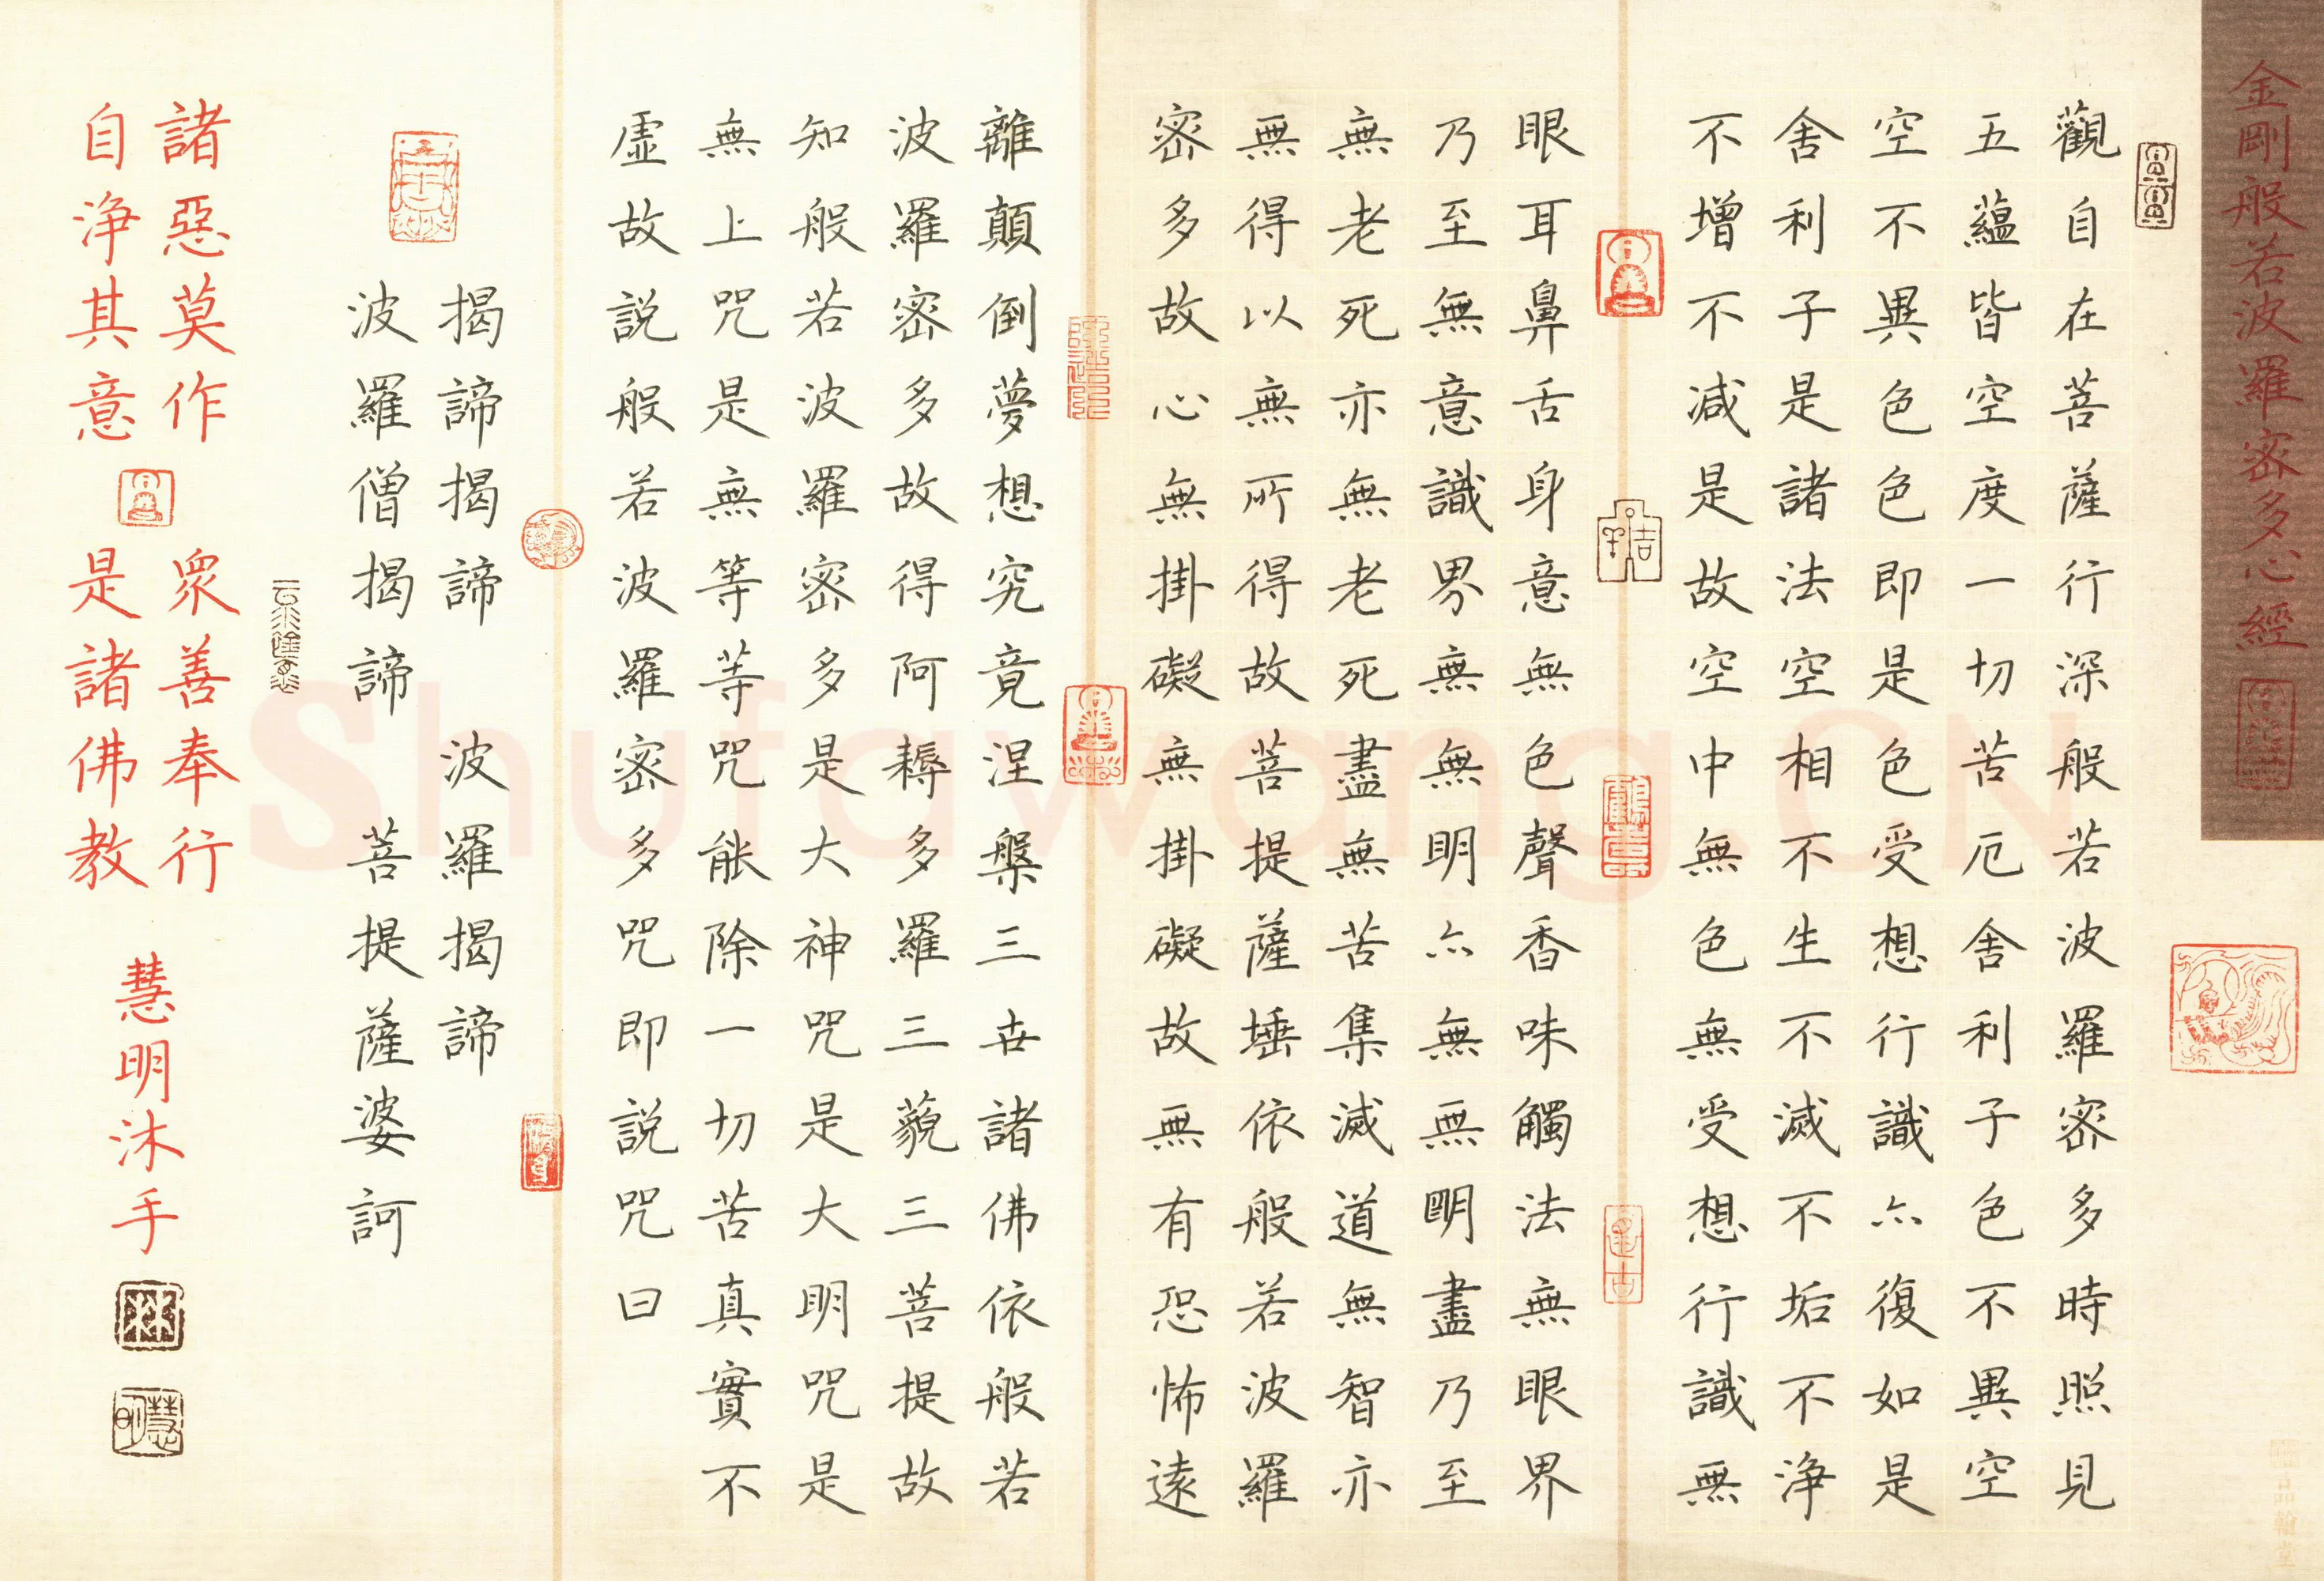 金剛般若波羅密多心經
觀自在菩薩行深般若波羅密多時照見
五蘊皆空度一切苦厄舍利子色不異空
空不異色色即是色受想行識亦復如是
舍利子是諸法空相不生不滅不垢不浄
不增不減是故空中無色無受想行識無
眼耳鼻舌身意無色聲香味觸法無眼界
乃至無意識界無無明亦無無明盡乃至
無老死亦無老死盡無苦集滅道無智亦
無得以無所得故菩提薩埵依般若波羅
密多故心無掛礙無掛礙故無有恐怖遠
離顛倒夢想究竟涅槃三世諸佛依般若
波羅密多故得阿耨多羅三藐三菩提故
知般若波羅密多是大神咒是大明咒是
無上咒是無等等咒能除一切苦真實不
虛故説般若波羅密多咒即説咒曰
揭諦揭諦 波羅揭諦
波羅僧揭諦 菩提薩婆訶
諸惡莫作 眾善奉行
自浄其意 是諸佛教
慧明沐手
林
慧明
Shufawang.CN